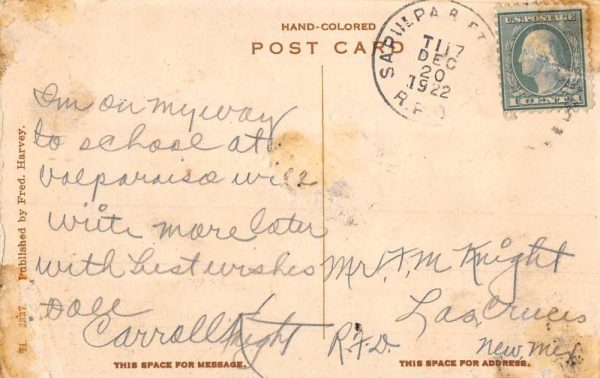 HAND-COLORED
POST CARD
SAPULPA &
T117
DEC
20
1922
R.P.O
U.S. POSTAGE
1 CENT
Published by Fred. Harvey.
I'm on my way
to school at
Valparaiso will
write more later
with best wishes
to all
Carroll Knight
Mr. F. M. Knight
Las Cruces
R.F.D.
New Mex
THIS SPACE FOR MESSAGE.
THIS SPACE FOR ADDRESS.